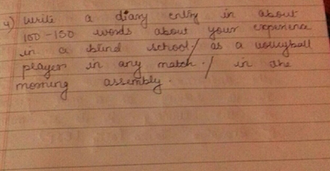 4) Write a diary entry in about
100-150 words about your experience
in a blind school./ as a volleyball
player in any match./ in the
morning assembly.